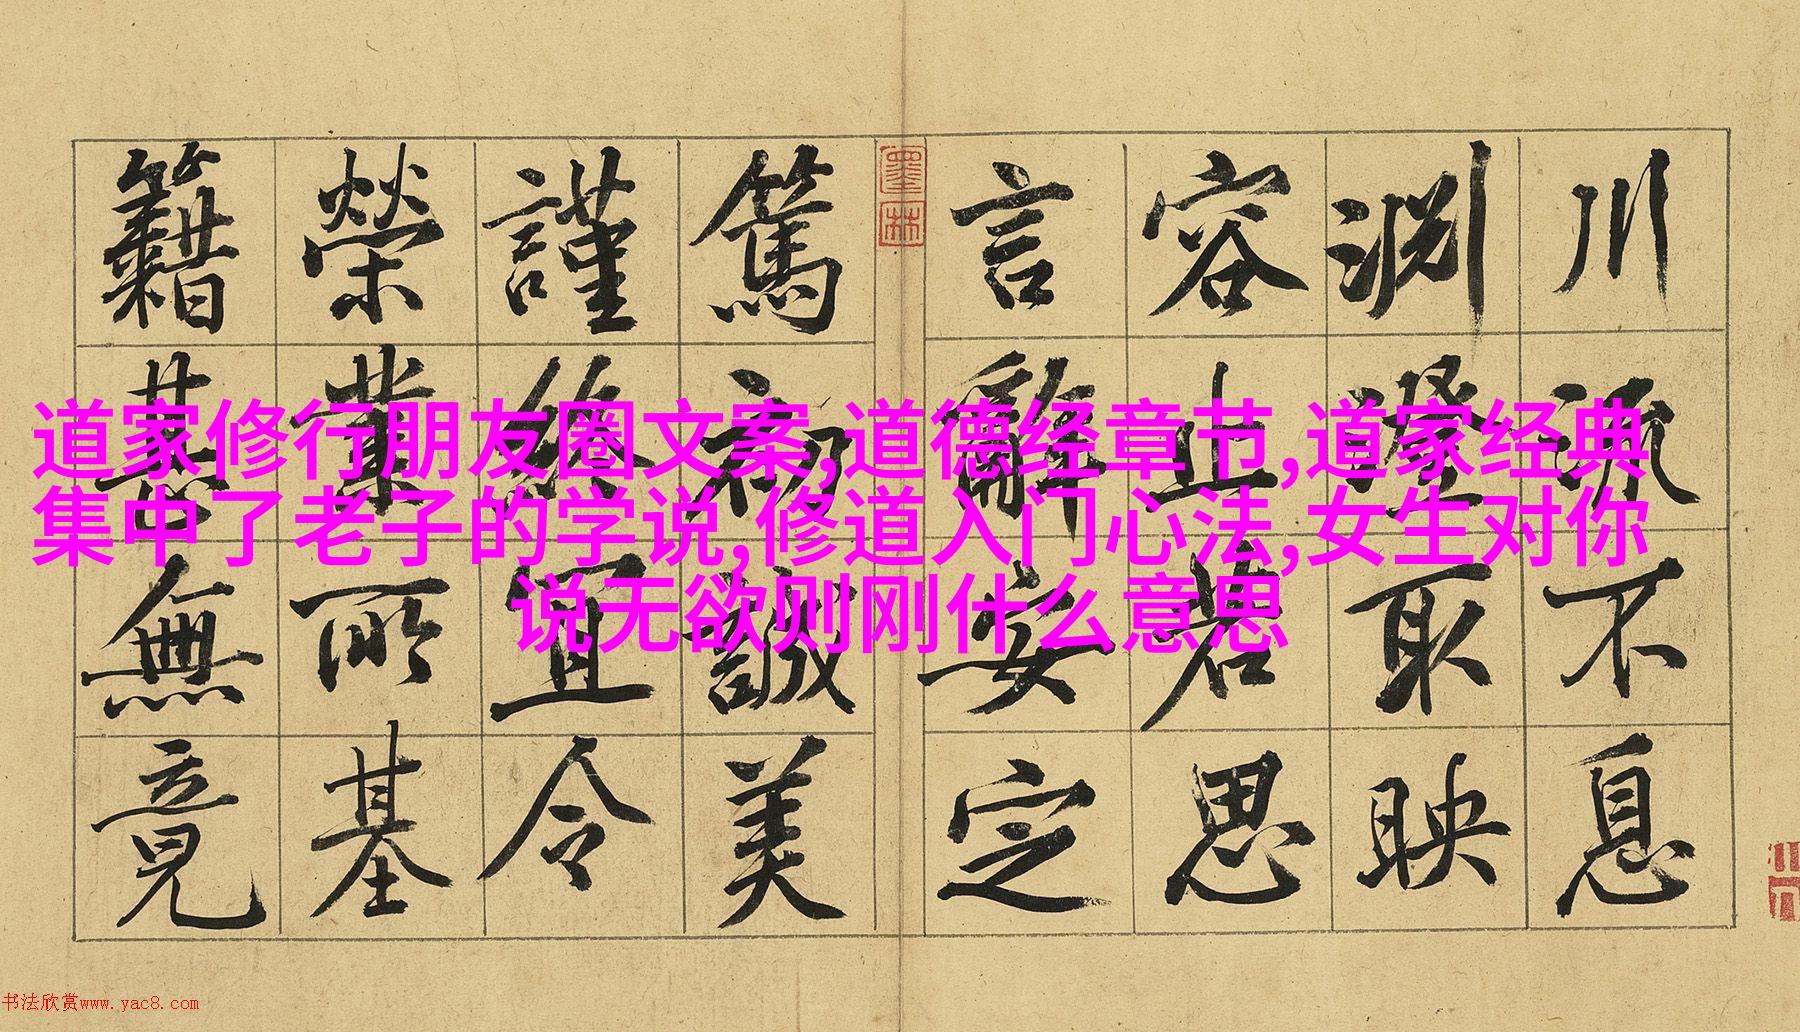 川流不息
淵澄取映
容止若思
言辭安定
墨林
篤初誠美
謹終宜令
榮業所基
籍甚無竟
道家修行朋友圈文案,道德经章节,道家经典
集中了老子的学说,修道入门心法,女生对你
说无欲则刚什么意思
书法欣赏www.yac8.com